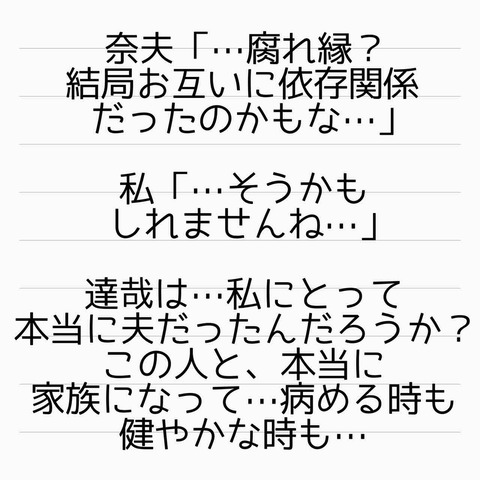 奈夫「…腐れ縁？
結局お互いに依存関係
だったのかもな…」
私「…そうかも
しれませんね…」
達哉は…私にとって
本当に夫だったんだろうか？
この人と、本当に
家族になって…病める時も
健やかな時も…